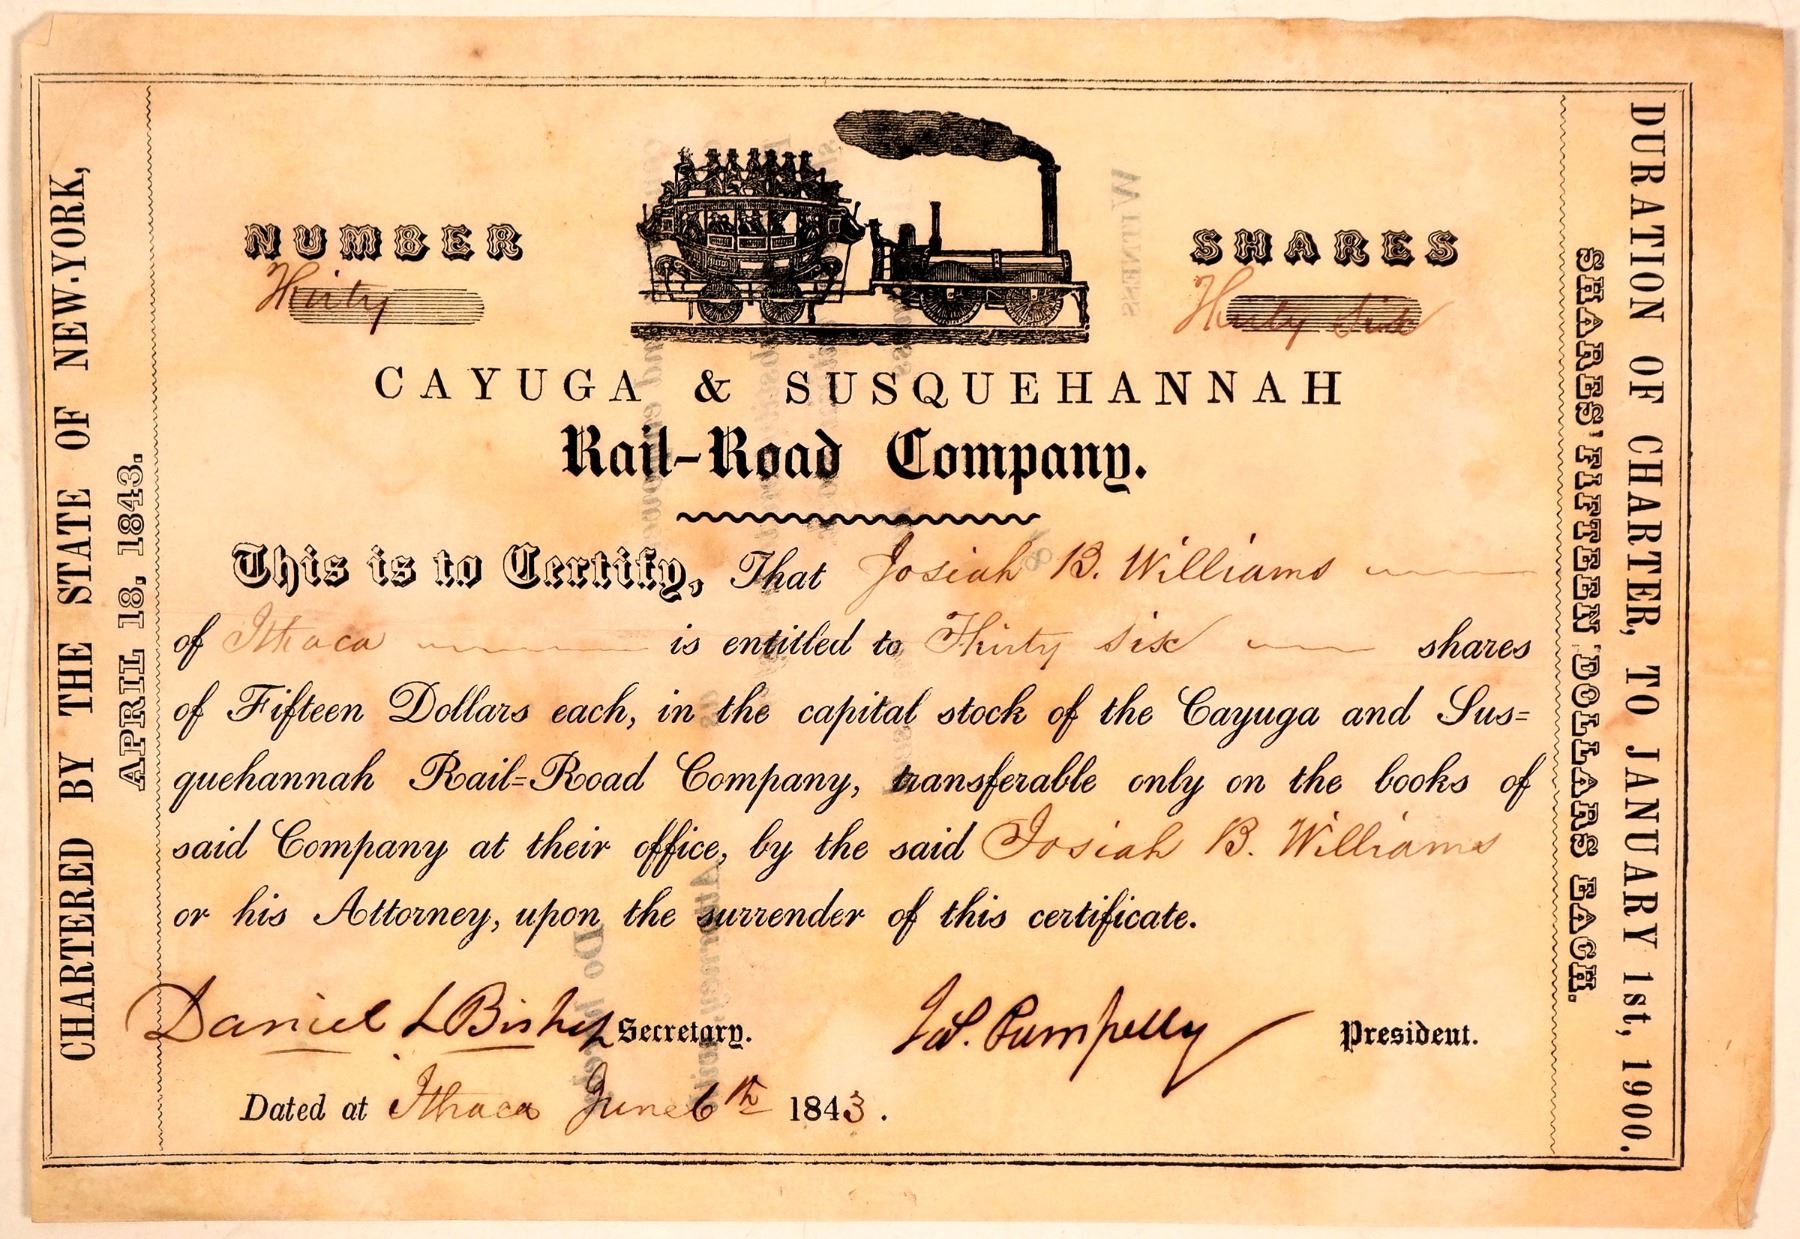 CHARTERED BY THE STATE OF NEW-YORK,
APRIL 18, 1843.
NUMBER
Thirty
SHARES
Thirty Six
CAYUGA & SUSQUEHANNAH
Rail-Road Company.
This is to Certify, That Josiah B. Williams
of Ithaca is entitled to Thirty Six shares
of Fifteen Dollars each, in the capital stock of the Cayuga and Sus=
quehannah Rail=Road Company, transferable only on the books of
said Company at their office, by the said Josiah B. Williams
or his Attorney, upon the surrender of this certificate.
Daniel L Bishop Secretary. Jas. Pumpelly President.
Dated at Ithaca June 6th 1843.
SHARES' FIFTEEN DOLLARS EACH.
DURATION OF CHARTER, TO JANUARY 1st, 1900.
WITNESS